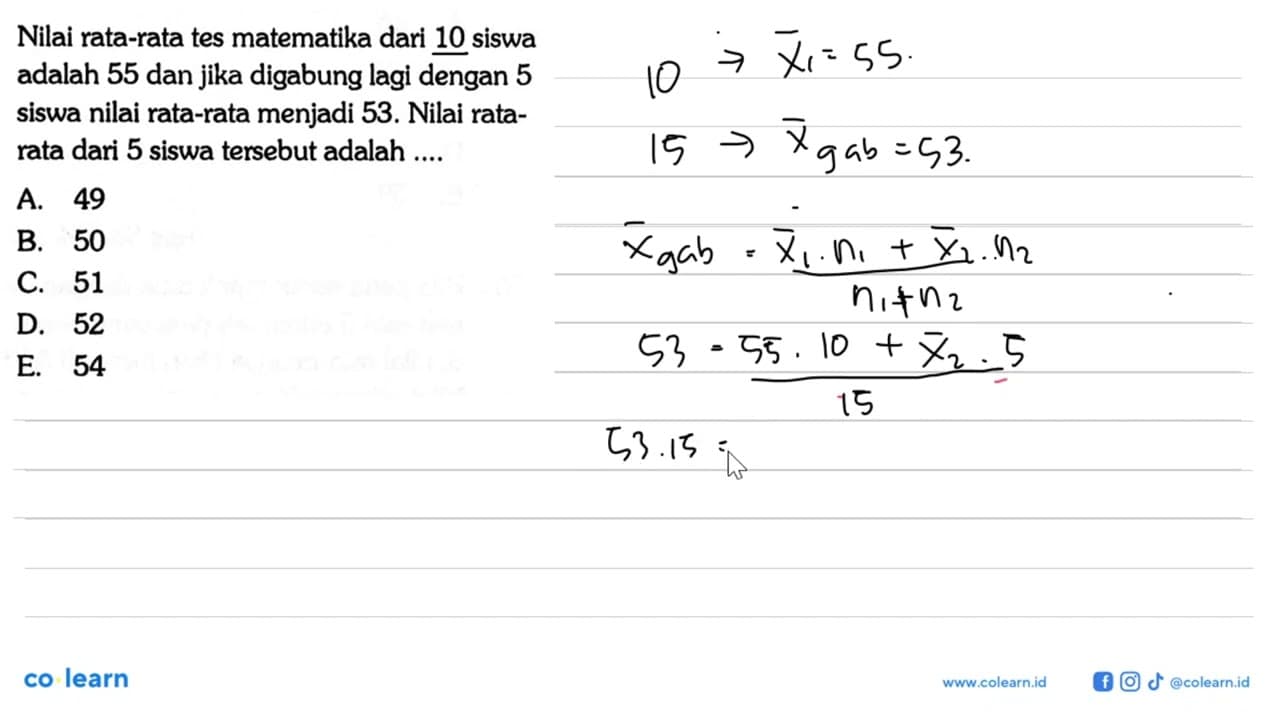 Nilai rata-rata tes matematika dari 10 siswa
adalah 55 dan jika digabung lagi dengan 5
siswa nilai rata-rata menjadi 53. Nilai rata-
rata dari 5 siswa tersebut adalah ....
A. 49
B. 50
C. 51
D. 52
E. 54
10 → x̄₁ = 55.
15 → x̄gab = 53.
x̄gab = x̄₁ . n₁ + x̄₂ . n₂
n₁ + n₂
53 = 55 . 10 + x̄₂ . 5
15
53 . 15 =
co learn
www.colearn.id
@colearn.id